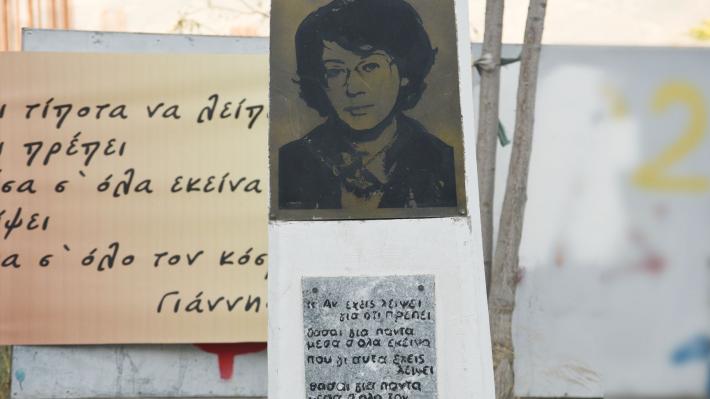 ι τίποτα να λείπ
ι πρέπει
σα σ`όλα εκείνα
ίψει
α σ`όλο τον κόσ
Γιάννη
"Αν εχεις λειψει
για ότι πρεπει
θασαι για παντα
μεσα σ ολα εκεινα
που γι αυτα εχεις
λειψει
θασαι για παντα
μεσα σ ολο τον
2